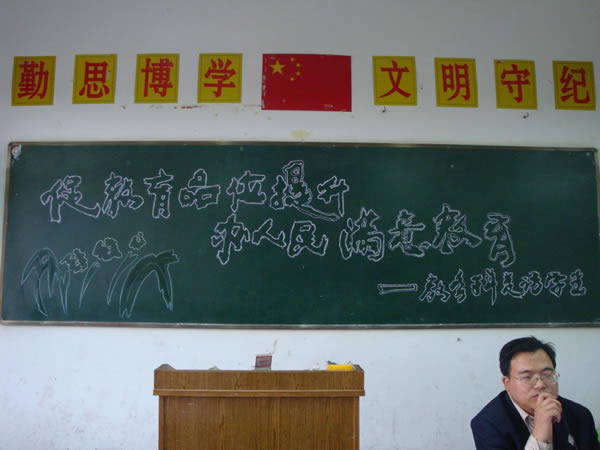 勤思博学 文明守纪
促教育品位提升
办人民满意教育
一教 科 访学生